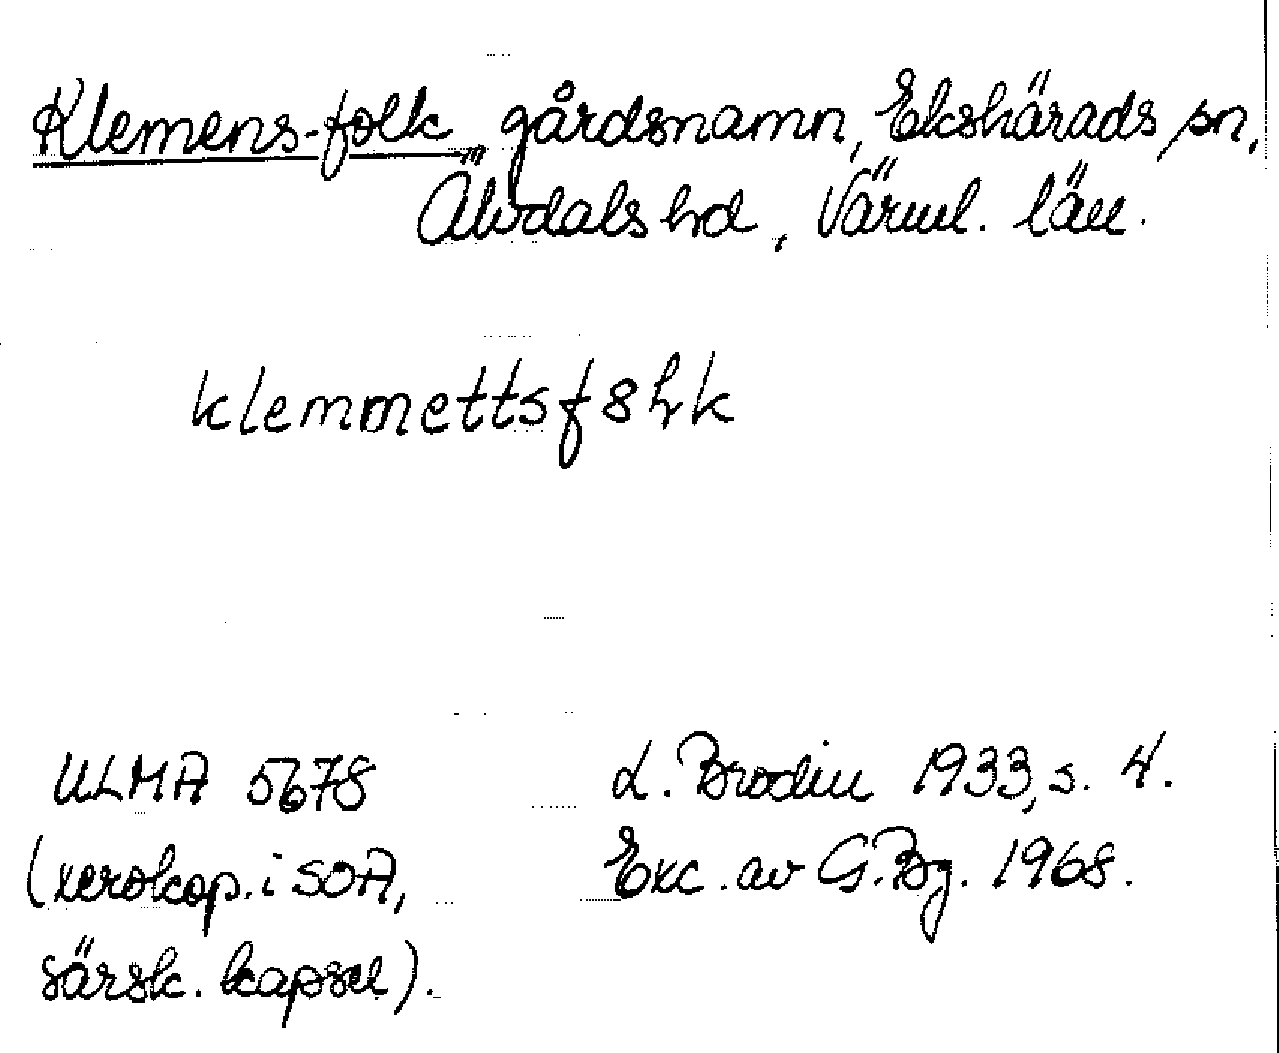 Klemens-folk, gårdsnamn, Ekshärads sn,
Älvdals hd, Värml. län.
klemmettsf8hk
ULMA 5678
(xerokop. i SOA,
särsk. kapsel).
L. Brodin 1933, s. 4.
Exc. av G.Bg. 1968.